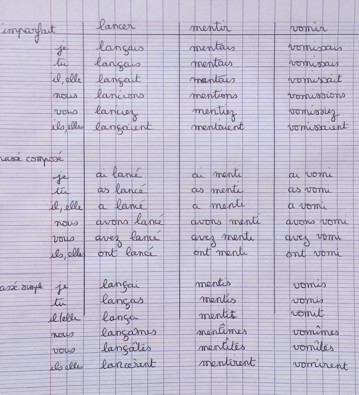 imparfait lancer mentir vomir
je lançais mentais vomissais
tu lançais mentais vomissais
il, elle lançait mentait vomissait
nous lancions mentions vomissions
vous lanciez mentiez vomissiez
ils, elles lançaient mentaient vomissaient
passé composé
je ai lancé ai menti ai vomi
tu as lancé as menti as vomi
il, elle a lancé a menti a vomi
nous avons lancé avons menti avons vomi
vous avez lancé avez menti avez vomi
ils, elles ont lancé ont menti ont vomi
passé simple je lançai mentis vomis
tu lanças mentis vomis
il/elle lança mentit vomit
nous lançâmes mentîmes vomîmes
vous lançâtes mentîtes vomîtes
ils elles lancèrent mentirent vomirent